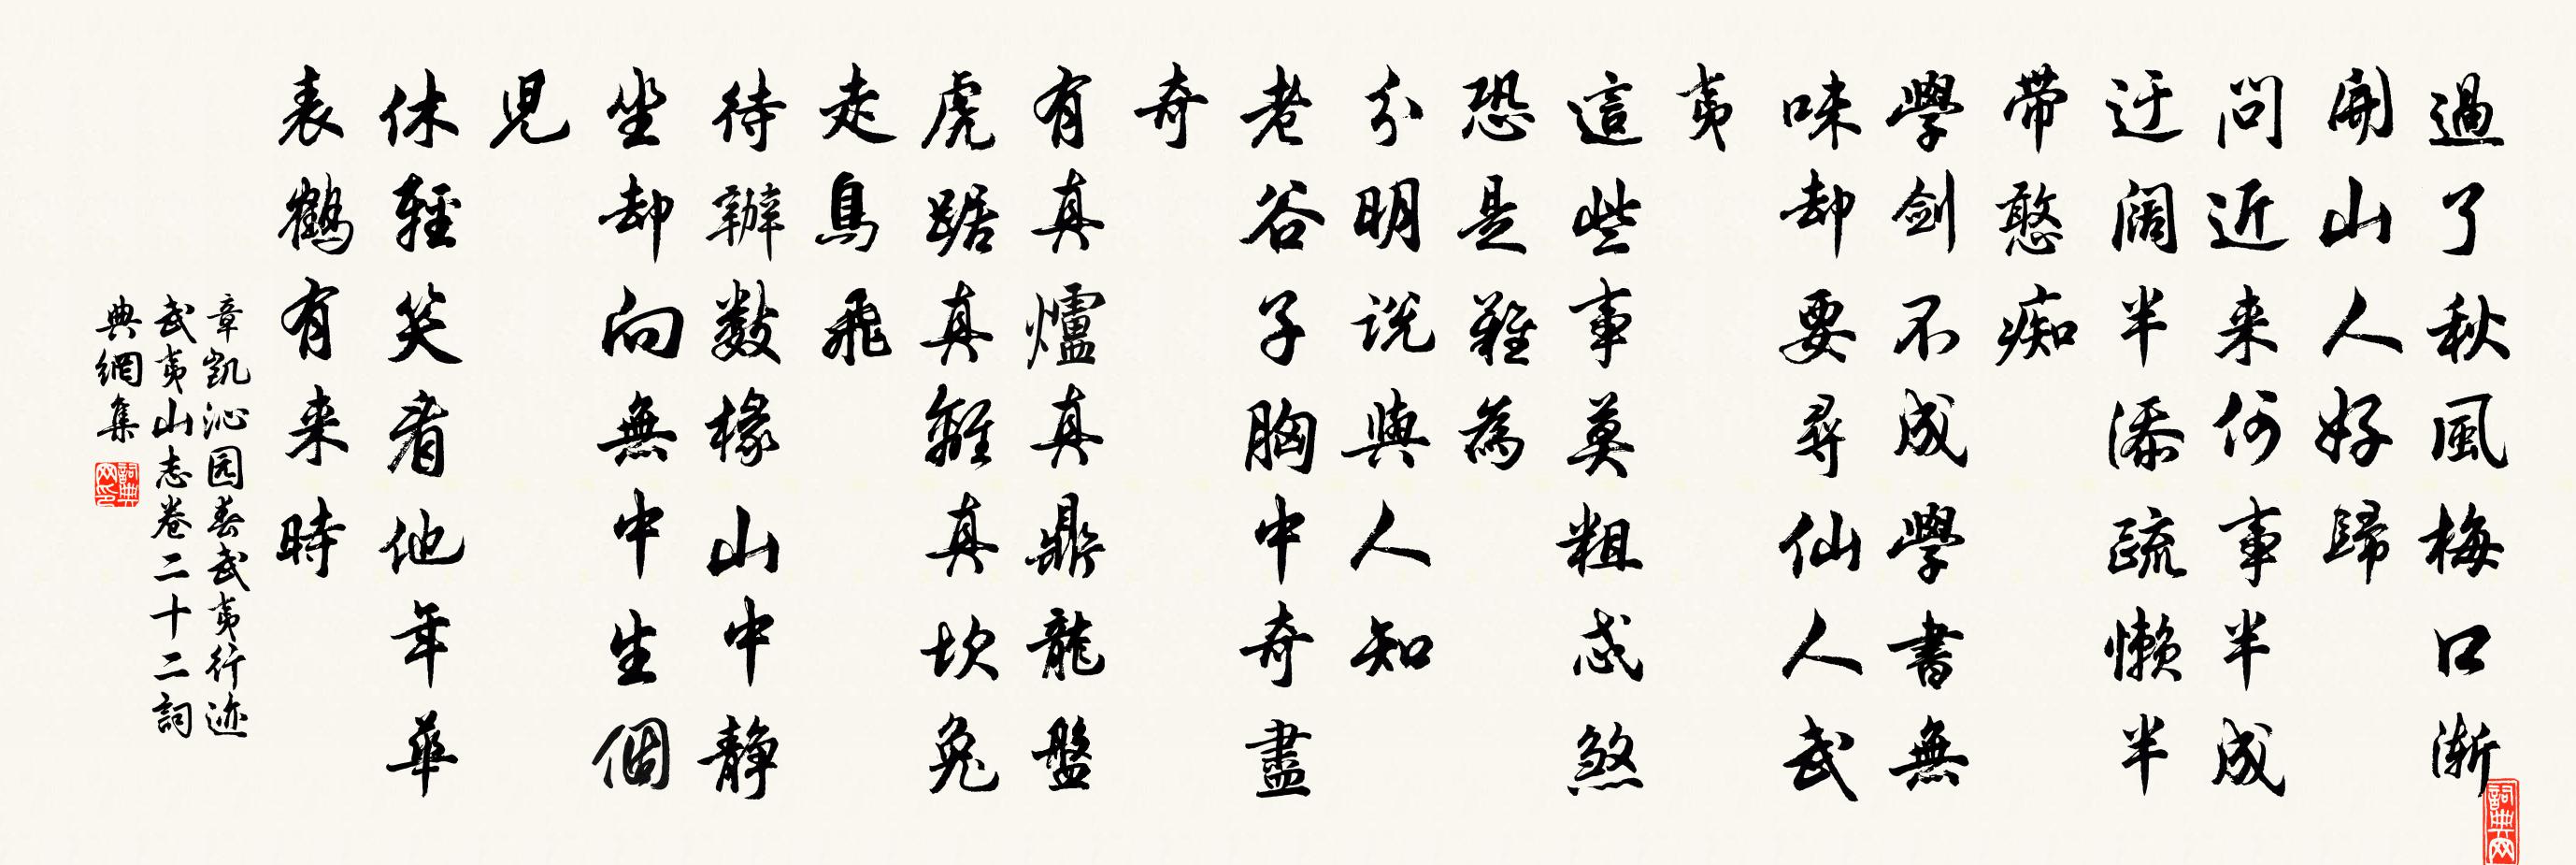 過了秋風梅口漸
開山人好歸
問近来何事半成
迂阔半添疏懒半
带憨痴
學劍不成學書無
味却要尋仙人武
夷
這些事莫粗忒煞
恐是難為
分明说與人知
老谷子胸中奇盡
奇
有真爐真鼎龍盤
虎踞真離真坎兔
走烏飛
待辦數椽山中靜
坐却向無中生個
兒
休輕笑看他年華
表鶴有来時
章凯沁园春武夷行迹
武夷山志卷二十二詞
典網集
詞典网印
詞典网